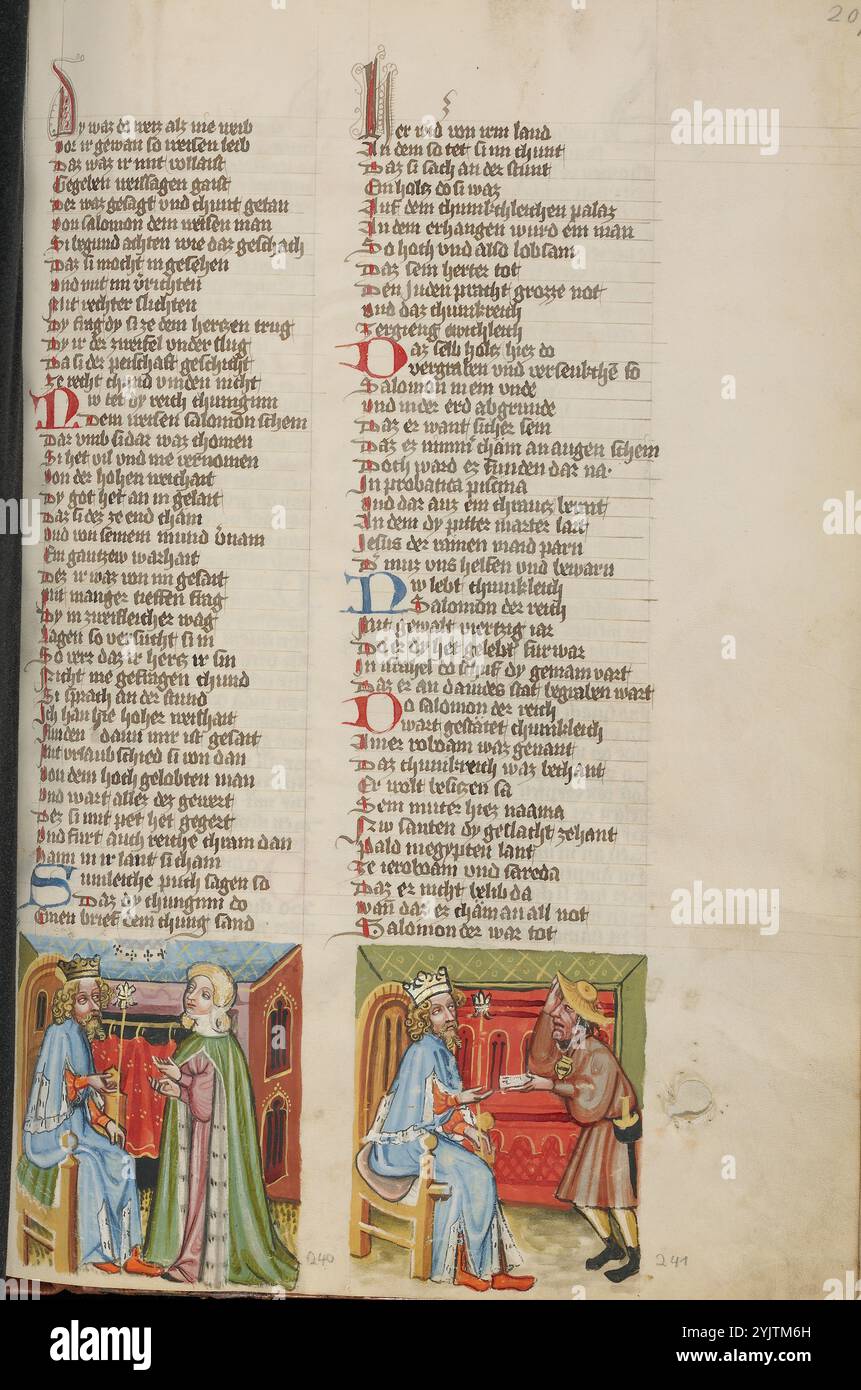 Dy waz do werz alz me weib
vor ir gewan so weisen leib
Daz waz ir mit vollaist
Gegeben weissagen gaist
Der waz gesagt vnd chunt getan
von salomon dem weisen man
Si begund achten wie daz geschach
Daz si mocht in gesehen
vnd mit im
Mit rechter slichten
Dy frag dy si ze dem herczen trug
Dy ir der zweifel vnder slug
Da si der geschicht
Ze recht chund vinden nicht
Nw tet dy reich chunginn
Dem weisen salomon schein
Dar vmb si dar waz chomen
Si het vil vnd me vernomen
von der hohen weishait
Dy got het an in gelait
Daz si dez ze end cham
vnd von seinem mund
Ein gantzew warhait
Dez ir waz von im gesait
Mit manger tieffen frag
Dy in zweifleicher wag
lagen so versucht si in
So verr daz ir hercz ir sin
Nicht me gefragen chund
Si sprach an der stund
Ich han hie hoher weishait
funden dann mir ist gesait
Mit vrlaub schied si von dan
von dem hoch gelobten man
vnd wart allez dez gewert
Dez si mit pet het gegert
vnd furt auch reiche chram dan
haim in ir lant si cham
Sumleiche puch sagen so
Daz dy chunginn do
Einen brief dem chung sand
Her wid von irm land
In dem so tet si im chunt
Daz si sach an der stunt
Ein holz do si waz
Auf dem chunkchleichen palaz
In dem erhangen wurd ein man
So hoch vnd also lobsam
Daz sein herter tot
Den Juden pracht grozze not
vnd daz chunkreich
Zergieng ewichleich
Daz selb holz hiez do
vergraben vnd versenkchen so
Salomon in ein vnde
vnd in der erd abgrunde
Daz er want sicher sein
Daz ez nimmer cham an augen schein
Doch ward ez funden dar na
In probatica piscina
vnd dar auz ein chrawcz berait
In dem dy pitter marter lait
Jesus der rainen maid parn
Der muz vns helfen vnd bewarn
Nw lebt chunkleich
Salomon der reich
Mit gewalt viertzig iar
Do er dy het gelebt fur war
In do schuf dy gemain vart
Daz er an dauides stat begraben wart
Do salomon der reich
wart gestatet chunkleich
Ainer roboam waz genant
Daz chunkreich waz bechant
Er wolt besiczen sa
Sein muter hiez naama
Nw santen dy geslacht zehant
Pald in egypten lant
Ze ieroboam vnd sareda
Daz er nicht belib da
wan daz er cham an all not
Salomon der war tot
240
241
20
alamy
Image ID: 2YJTM6H
www.alamy.com